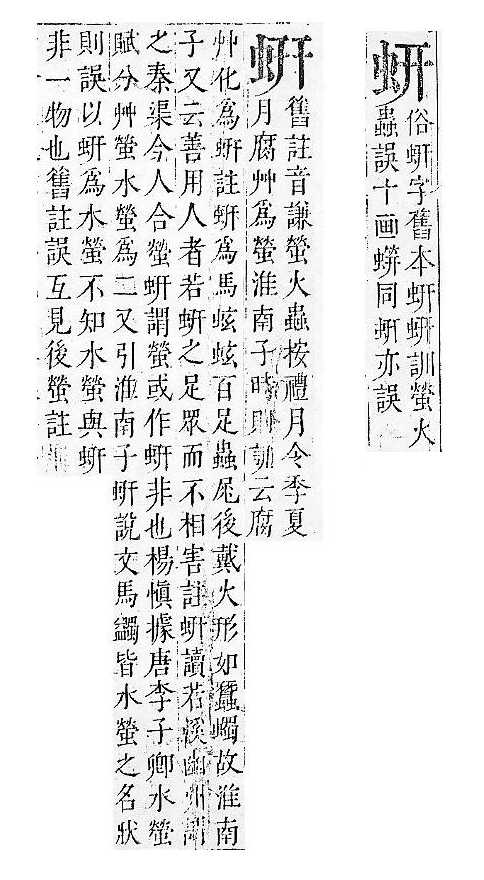 蚈
俗蚈字舊本蚈蚈訓螢火
蟲誤十画同蚈亦誤
蚈
舊註音謙螢火蟲按禮月令季夏
月腐艸爲螢淮南子時則訓云腐
艸化爲蚈註蚈爲馬蚿蚿百足蟲凥後戴火形如蠶蠋故淮南
子又云善用人者若蚈之足眾而不相害註蚈讀若谿幽州謂
之秦渠今人合螢蚈謂螢或作蚈非也楊愼據唐李子卿水螢
賦分艸螢水螢爲二又引淮南子蚈說文馬蠲皆水螢之名狀
則誤以蚈爲水螢不知水螢與蚈
非一物也舊註誤互見後螢註